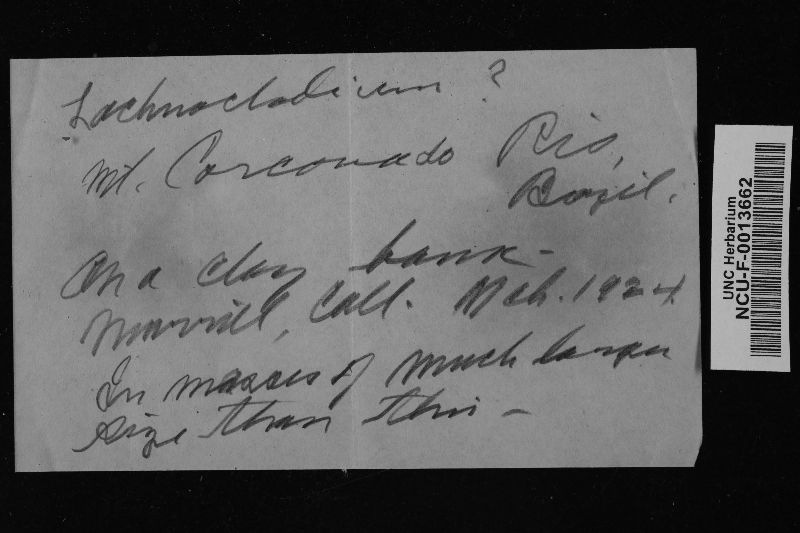 Lachnocladium ?
Mt. Corcovado Rio,
Brazil.
On a clay bank -
Murrill, Coll. Mch. 1924
In masses of much larger
size than this -
UNC Herbarium
NCU-F-0013662